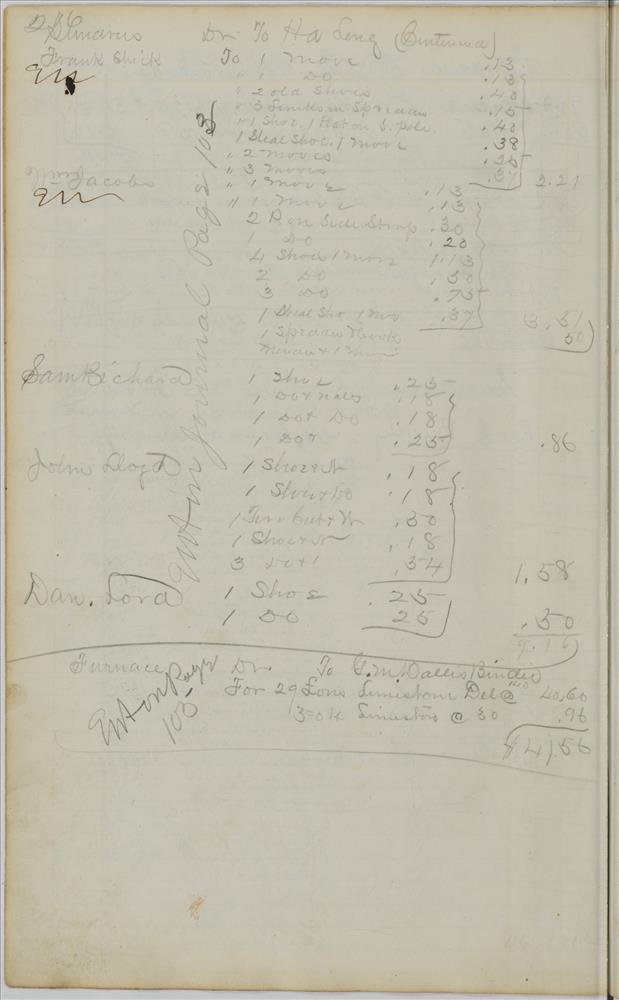 Dr. To H a Long (Centennia)
Frank Shick To 1 move .13
" 1 Do .13
" 2 old Shoes .40
" 3 Links in Spreader .15
" 1 Shoe. 1 Plat on S. pole. .40
1 Steal Shoe. 1 move .38
" 2 moves .25
" 3 moves .37 2.21
Jacobs " 1 move .13
" 1 move .13
2 P. on Side Strap .30
1 Do .20
4 Shoes 1 move 1.13
2 Do .50
3 Do .75
1 Steal Sho 1 mo .37 3.51
1 Spreader 50
Sam Richard 1 Shoe .25
1 Do + nales .18
1 Do + Do .18
1 Do + .25 .86
John Lloyd 1 Shoe + N .18
1 Shoe + Do .18
1 Tire Cut + W .50
1 Shoe + N .18
3 Do + ' .54 1.58
Dan. Lord 1 Shoe .25
1 Do 25 .50
9.16
Ent in Journal Page 103
Furnace Dr. To G. M. Dallis Binder
For 29 Tons Limestone Del @ 1.40 40,60
3-04 Limesto @ 30 .96
$41,56
Ent on Page
103